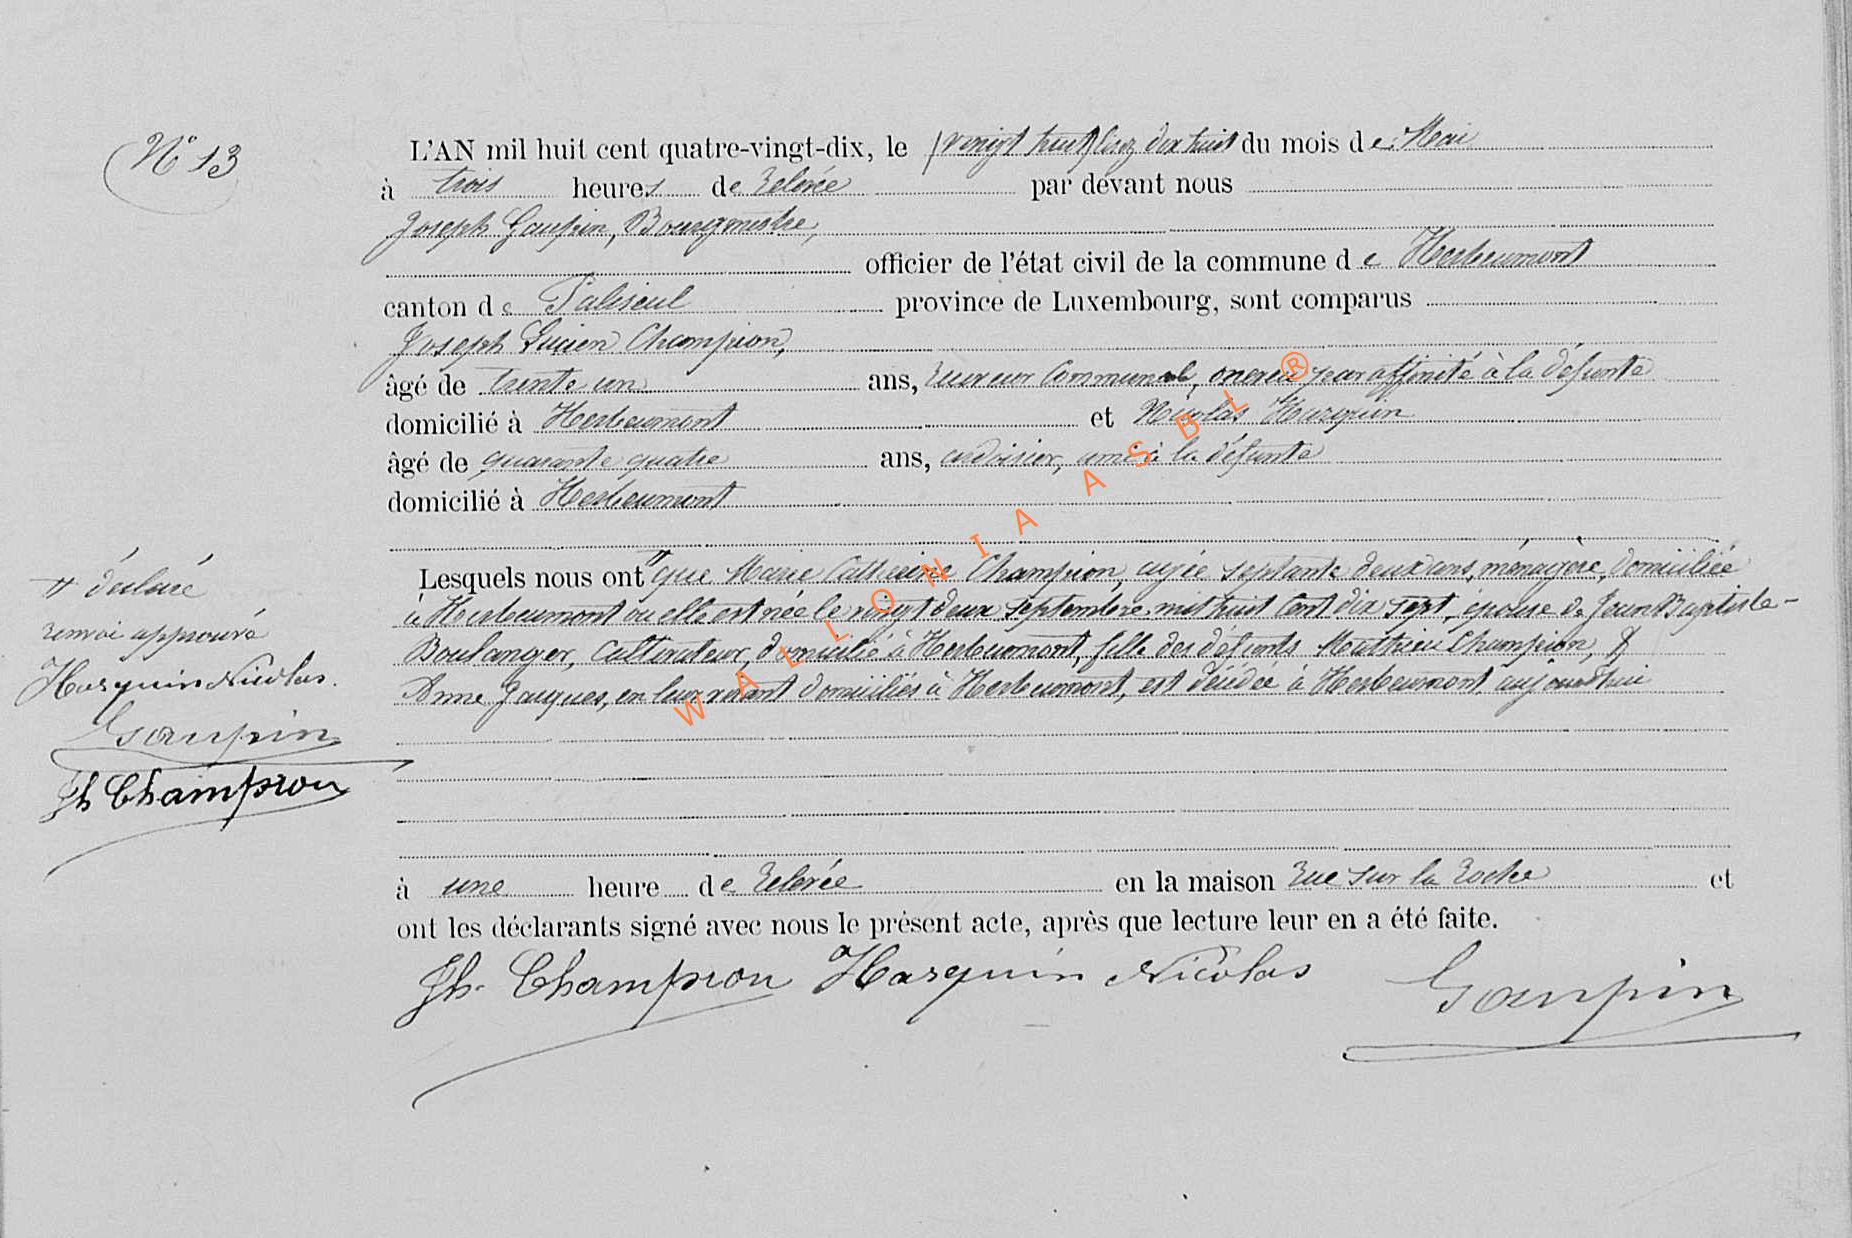 N° 13
L'AN mil huit cent quatre-vingt-dix, le (vingt huit) lisez dix huit du mois de Mai
à trois heures de Relevée par devant nous
Joseph Gaupin, Bourgmestre,
officier de l'état civil de la commune de Herbeumont
canton de Paliseul province de Luxembourg, sont comparus
Joseph Lucien Champion,
âgé de trente un ans, Receveur Communal, neveu par affinité à la défunte
domicilié à Herbeumont et Nicolas Harquin
âgé de quarante quatre ans, ardoisier, ami à la défunte
domicilié à Herbeumont
Lesquels nous ont # que Marie Catherine Champion, agée septante deux ans, ménagère, domiciliée
à Herbeumont ou elle est née le vingt deux Septembre mil huit cent dix sept, épouse de Jean Baptiste-
Boulanger, Cultivateur, domicilié à Herbeumont, fille des défunts Mathieu Champion, &
Anne Jacques, en leur vivant domiciliés à Herbeumont, est décédée à Herbeumont aujourd'hui
# déclaré
renvoi approuvé
Harquin Nicolas.
Gaupin
Jh Champion
à une heure de Relevée en la maison Rue sur la Roche et
ont les déclarants signé avec nous le présent acte, après que lecture leur en a été faite.
Jh. Champion Harquin Nicolas Gaupin
WALLONIA ASBL ®